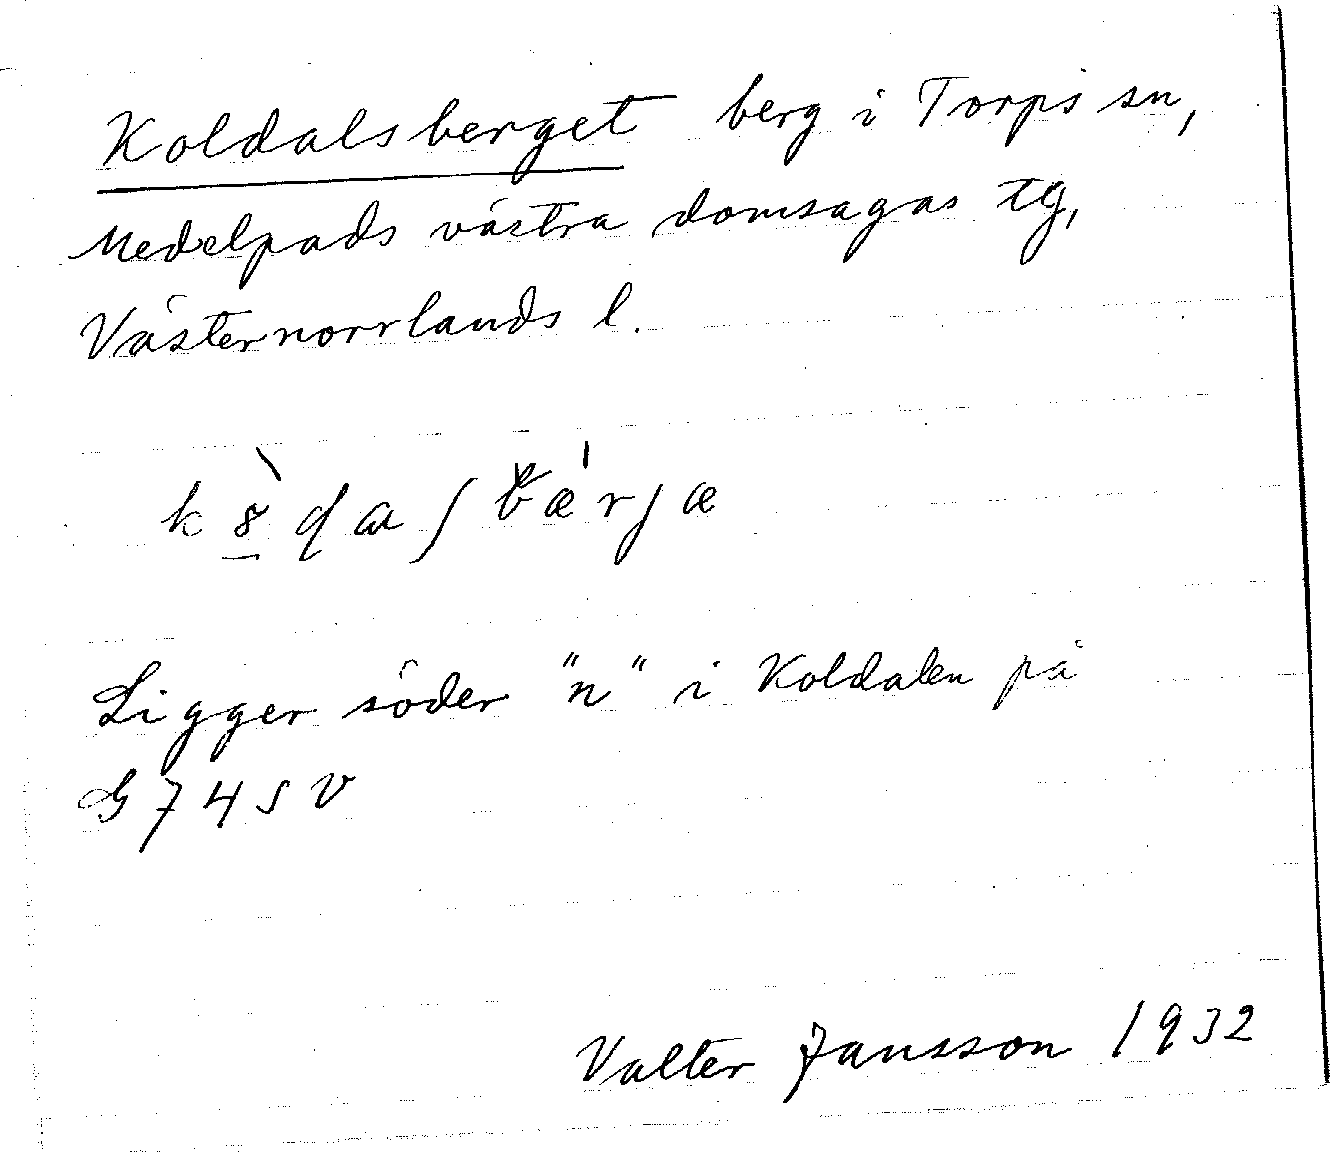 Koldalsberget berg i Torps sn,
Medelpads västra domsagas tg,
Västernorrlands l.
Ligger söder "n" i Koldalen på
G74SV
Valter Jansson 1932